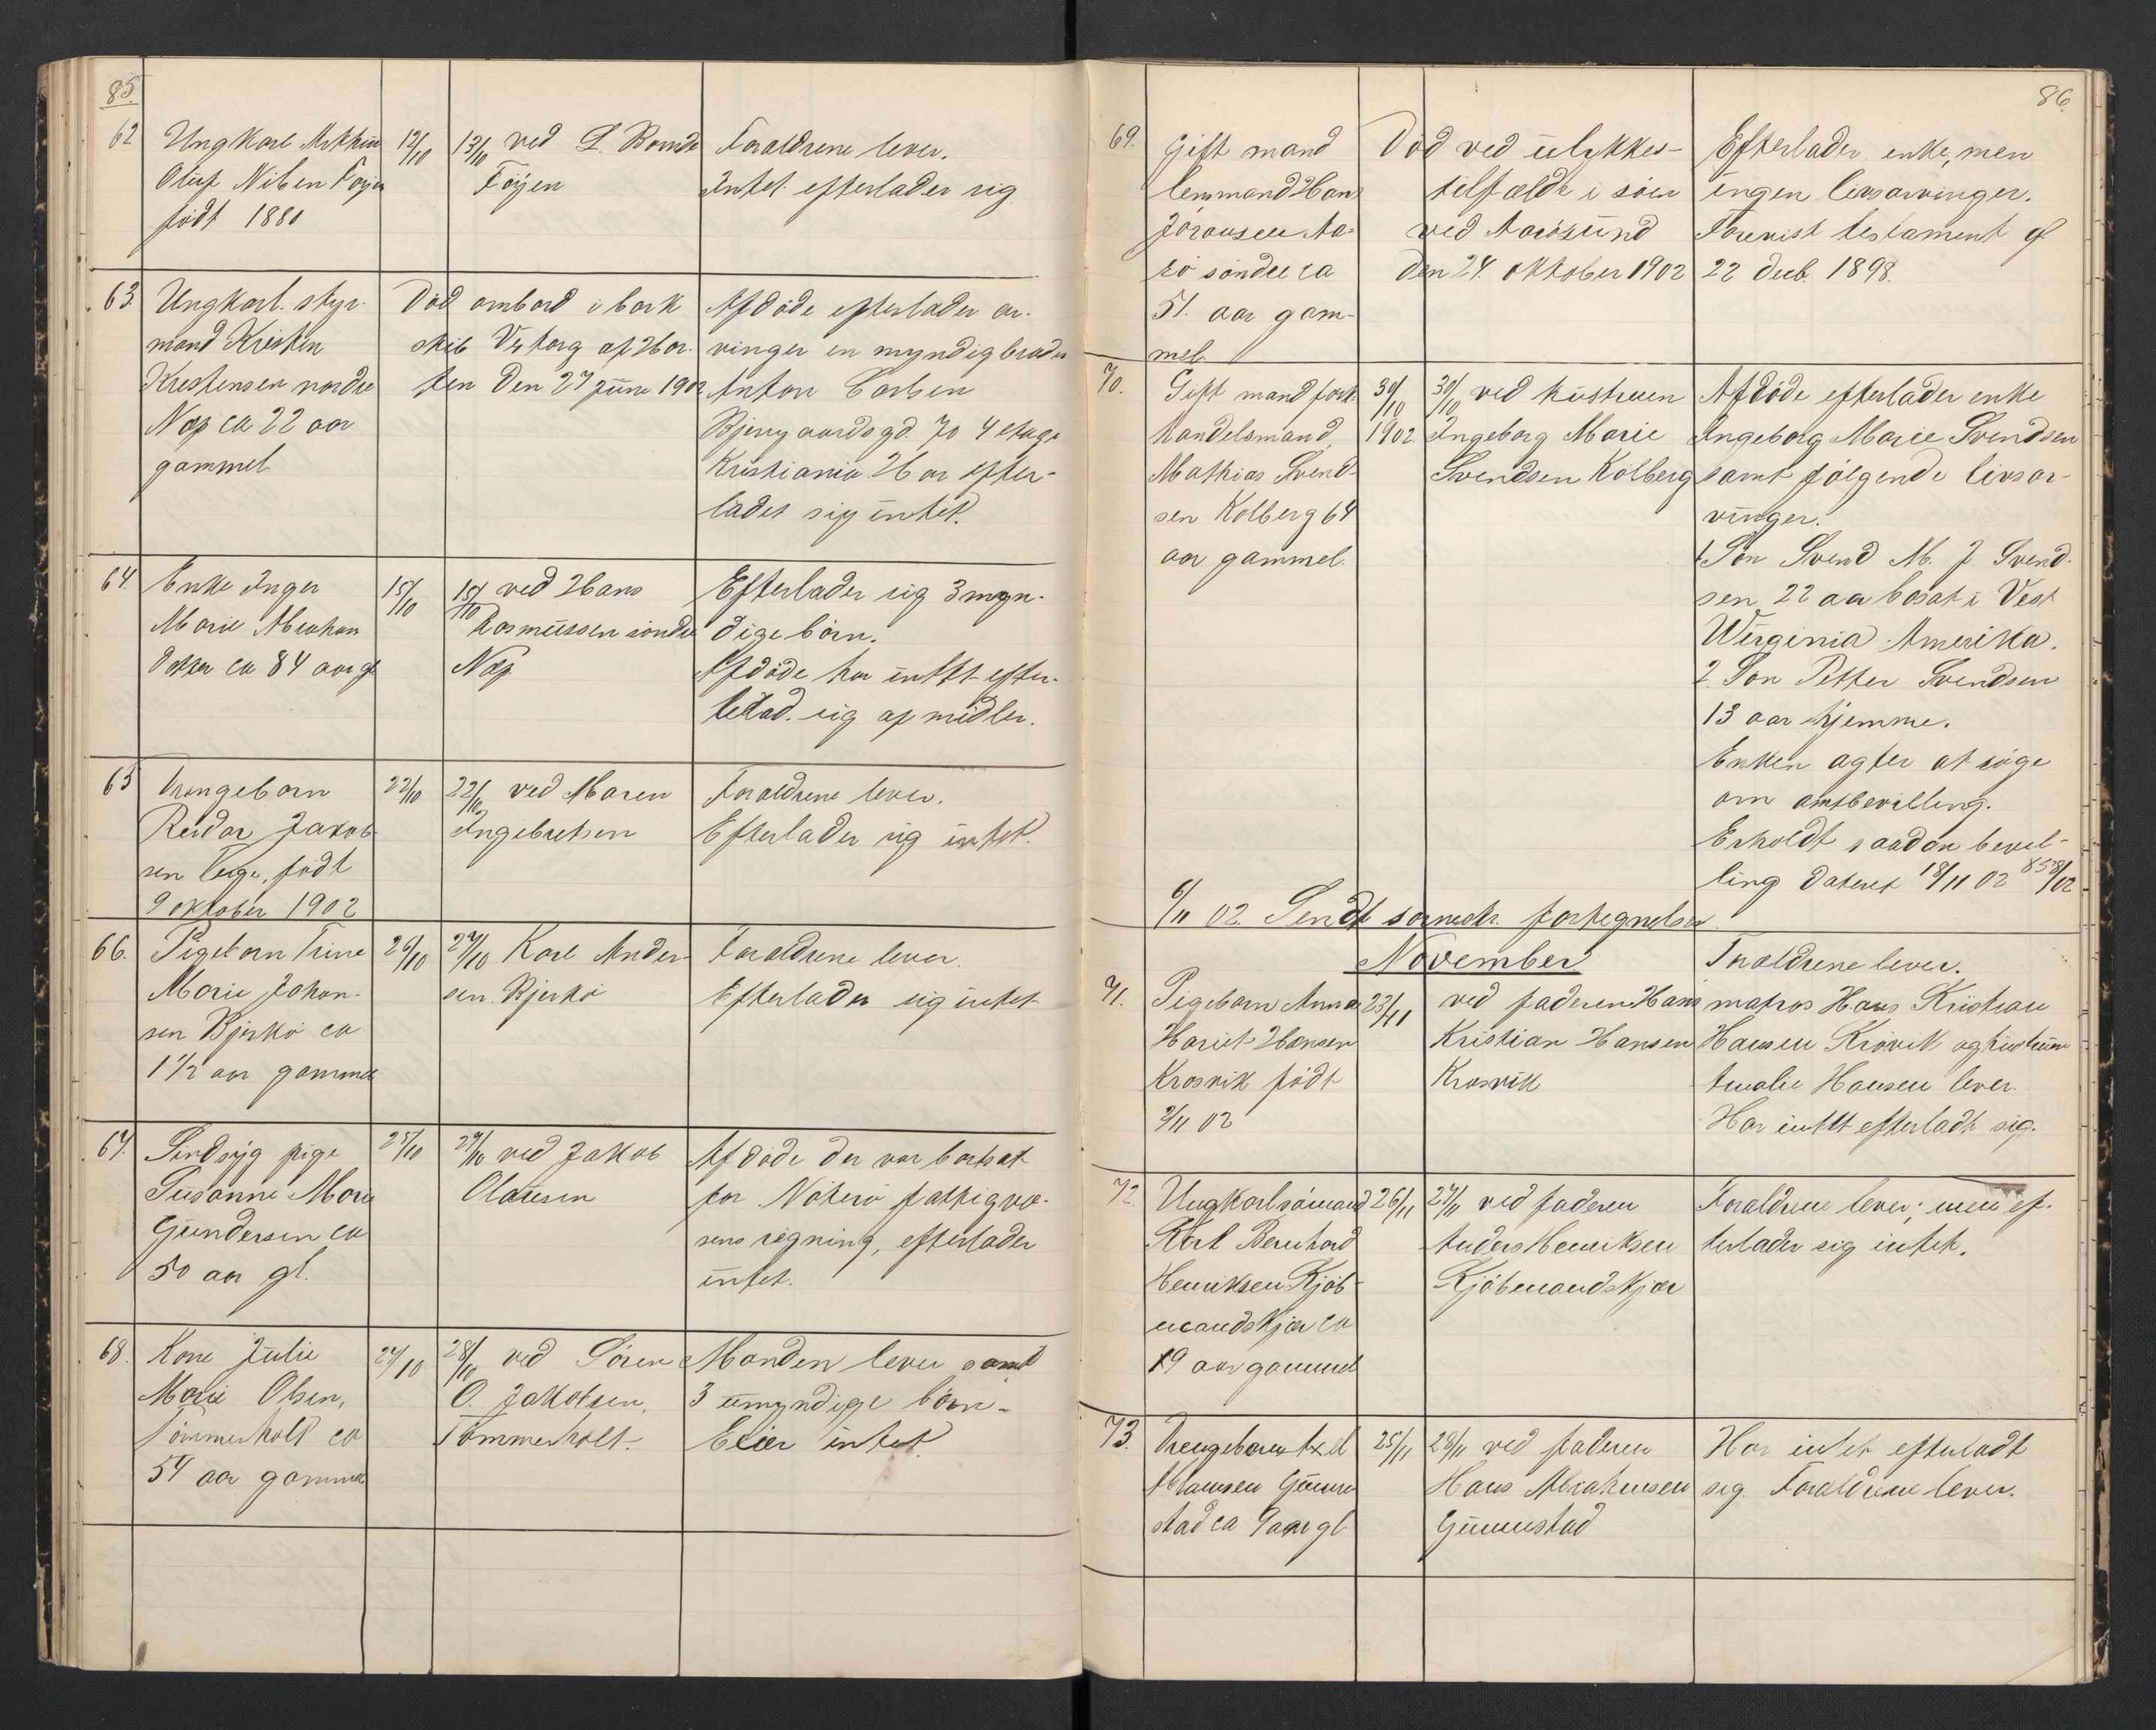 85.
62 Ungkarl
Oluf Nilsen Føyn
født 1880
12/10
13/10 ved L. Bernts
Föyen
Forældrene lever.
Intet efterlader sig
63 Ungkarl. styr-
mand Kristen
Kristensen nordre
Næs ca 22 aar
gammel
Död ombord i bark
skib af Hor-
ten den 27 june 1902
Afdöde efterlader ar-
vinger en myndig broder
Anton Carlsen
gd. 70 4 etage
Kristiania Har efter-
ladt sig intet.
64. Enke Inger
Marie Abraham
ca 84 aar gl
15/10
15/10 ved Hans
Rasmussen söndre
Næs
Efterlader sig 3 myn-
dige börn.
Afdöde har intet efter-
ladt sig af midler.
65 Drengebarn
Reidar Jakob-
sen født
9 oktober 1902
22/10
22/10 ved Maren
Ingebretsen
Forældrene lever.
Efterlader sig intet.
66. Pigebarn Trine
Marie Johan-
sen Bjerkö ca
1 1/2 aar gammel
26/10
27/10 Karl Ander-
sen Bjerkö
Forældrene lever.
Efterlader sig intet
67. Sindsyg pige
Susanne Marie
Gundersen ca
50 aar gl.
25/10
27/10 ved Jakob
Olausen
Afdöde der var bortsat
for Nöterö fattigvæ-
sens regning, efterlader
intet.
68. Kone Julie
Marie Olsen,
Tömmerholt ca
54 aar gammel
27/10
28/10 ved Sören
O. Jakobsen,
Tömmerholt.
Manden lever samt
3 umyndige börn.
Eier intet.
86.
69. Gift mand
lensmand Hans
Aa-
rö söndre ca
51. aar gam-
mel.
Död ved ulykkes-
tilfælde i söen
ved Aarösund
den 24. oktober 1902
Efterlader enke, men
ingen livsarvinger.
testament af
22 decb. 1898.
70. Gift mand
handelsmand,
Mathias Svend-
sen Kolberg 64
aar gammel.
30/10
1902
30/10 ved hustruen
Ingeborg Marie
Svendsen Kolberg
Afdöde efterlader enke
Ingeborg Marie Svendsen
samt fölgende livsar-
vinger.
1. Sön Svend M. J. Svend-
sen 22 aar bosat i Vest
Wirginia Amerika.
2. Sön Petter Svendsen
13 aar hjemme.
Enken agter at söge
om amtbevilling.
Erholdt saadan bevil-
ling dateret 18/11 02
6/11 02. Sendt fortegnelse
November
71. Pigebarn Anna
Hariet Hansen
Krosvik födt
9/11 02
23/11
ved faderen Hans
Kristian Hansen
Krosvik
Forældrene lever.
matros Hans Kristian
Hansen og hustru
Amalie Hansen lever
Har intet efterladt sig.
72. Ungkarl sömand
Karl Bernhard
Henriksen Kjöb-
mandskjær ca
19 aar gammel
26/11
27/11 ved faderen
Anders Henriksen
Kjöbmandskjær
Forældrene lever; men ef-
terlader sig intet.
73. Drengebarn Axel
Gunne-
stad ca 9 aar gl
25/11
29/11 ved faderen
Hans Abrahamsen
Gunnestad
Har intet efterladt
sig. Forældrene lever.